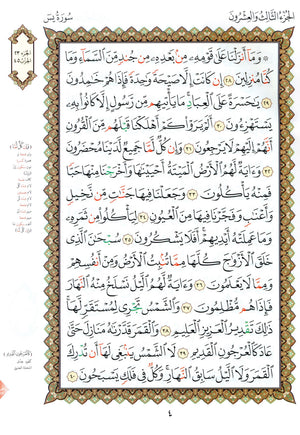 الجزء الثالث والعشرون
سورة يس
الجزء ٢٣
الحزب ٤٥
۞ وَمَا أَنزَلْنَا عَلَىٰ قَوْمِهِۦ مِنۢ بَعْدِهِۦ مِن جُندٍ مِّنَ ٱلسَّمَآءِ وَمَا
كُنَّا مُنزِلِينَ ٢٨ إِن كَانَتْ إِلَّا صَيْحَةً وَٰحِدَةً فَإِذَا هُمْ خَٰمِدُونَ
٢٩ يَٰحَسْرَةً عَلَى ٱلْعِبَادِ مَا يَأْتِيهِم مِّن رَّسُولٍ إِلَّا كَانُوا۟ بِهِۦ
يَسْتَهْزِءُونَ ٣٠ أَلَمْ يَرَوْا۟ كَمْ أَهْلَكْنَا قَبْلَهُم مِّنَ ٱلْقُرُونِ
أَنَّهُمْ إِلَيْهِمْ لَا يَرْجِعُونَ ٣١ وَإِن كُلٌّ لَّمَّا جَمِيعٌ لَّدَيْنَا مُحْضَرُونَ
٣٢ وَءَايَةٌ لَّهُمُ ٱلْأَرْضُ ٱلْمَيْتَةُ أَحْيَيْنَٰهَا وَأَخْرَجْنَا مِنْهَا حَبًّا
فَمِنْهُ يَأْكُلُونَ ٣٣ وَجَعَلْنَا فِيهَا جَنَّٰتٍ مِّن نَّخِيلٍ
وَأَعْنَٰبٍ وَفَجَّرْنَا فِيهَا مِنَ ٱلْعُيُونِ ٣٤ لِيَأْكُلُوا۟ مِن ثَمَرِهِۦ
وَمَا عَمِلَتْهُ أَيْدِيهِمْ أَفَلَا يَشْكُرُونَ ٣٥ سُبْحَٰنَ ٱلَّذِى
خَلَقَ ٱلْأَزْوَٰجَ كُلَّهَا مِمَّا تُنۢبِتُ ٱلْأَرْضُ وَمِنْ أَنفُسِهِمْ
وَمِمَّا لَا يَعْلَمُونَ ٣٦ وَءَايَةٌ لَّهُمُ ٱلَّيْلُ نَسْلَخُ مِنْهُ ٱلنَّهَارَ
فَإِذَا هُم مُّظْلِمُونَ ٣٧ وَٱلشَّمْسُ تَجْرِى لِمُسْتَقَرٍّ لَّهَا
ذَٰلِكَ تَقْدِيرُ ٱلْعَزِيزِ ٱلْعَلِيمِ ٣٨ وَٱلْقَمَرَ قَدَّرْنَٰهُ مَنَازِلَ حَتَّىٰ
عَادَ كَٱلْعُرْجُونِ ٱلْقَدِيمِ ٣٩ لَا ٱلشَّمْسُ يَنۢبَغِى لَهَآ أَن تُدْرِكَ
ٱلْقَمَرَ وَلَا ٱلَّيْلُ سَابِقُ ٱلنَّهَارِ وَكُلٌّ فِى فَلَكٍ يَسْبَحُونَ ٤٠
٤